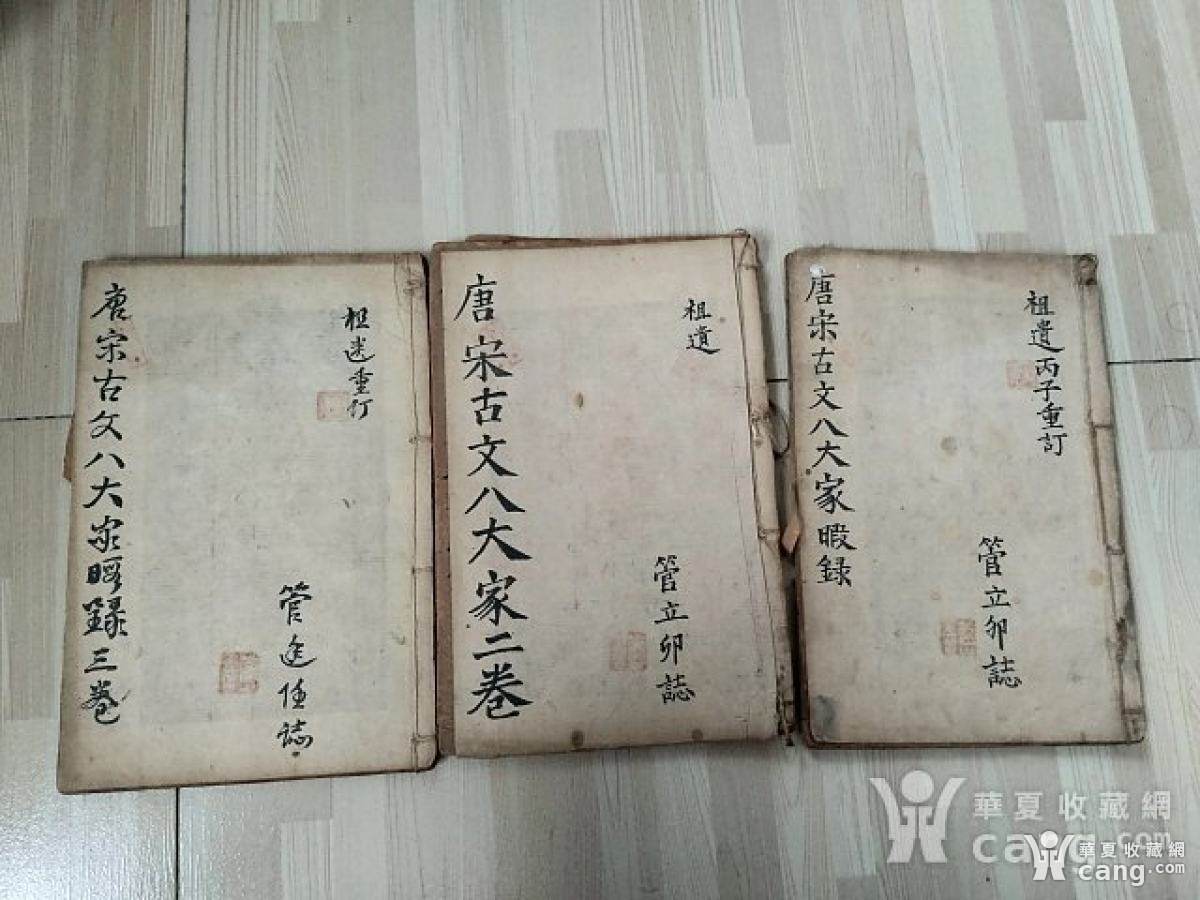 祖遺丙子重訂
管立卯誌
唐宋古文八大家暇錄
祖遺
管立卯誌
唐宋古文八大家二卷
祖遺重訂
誌
唐宋古文八大家暇錄三卷
華夏收藏網
cang.com
華夏收藏網
cang.com